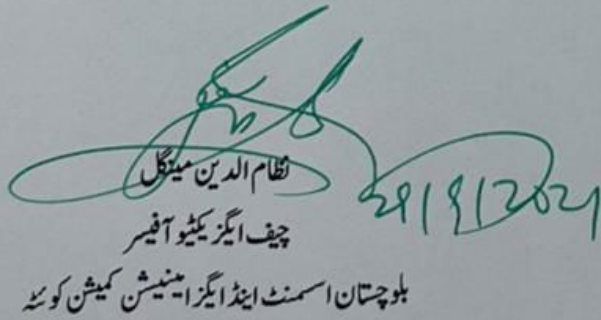 نظام الدین مینگل
چیف ایگزیکٹیو آفیسر
بلوچستان اسسمنٹ اینڈ ایگزامینیشن کمیشن کوئٹہ